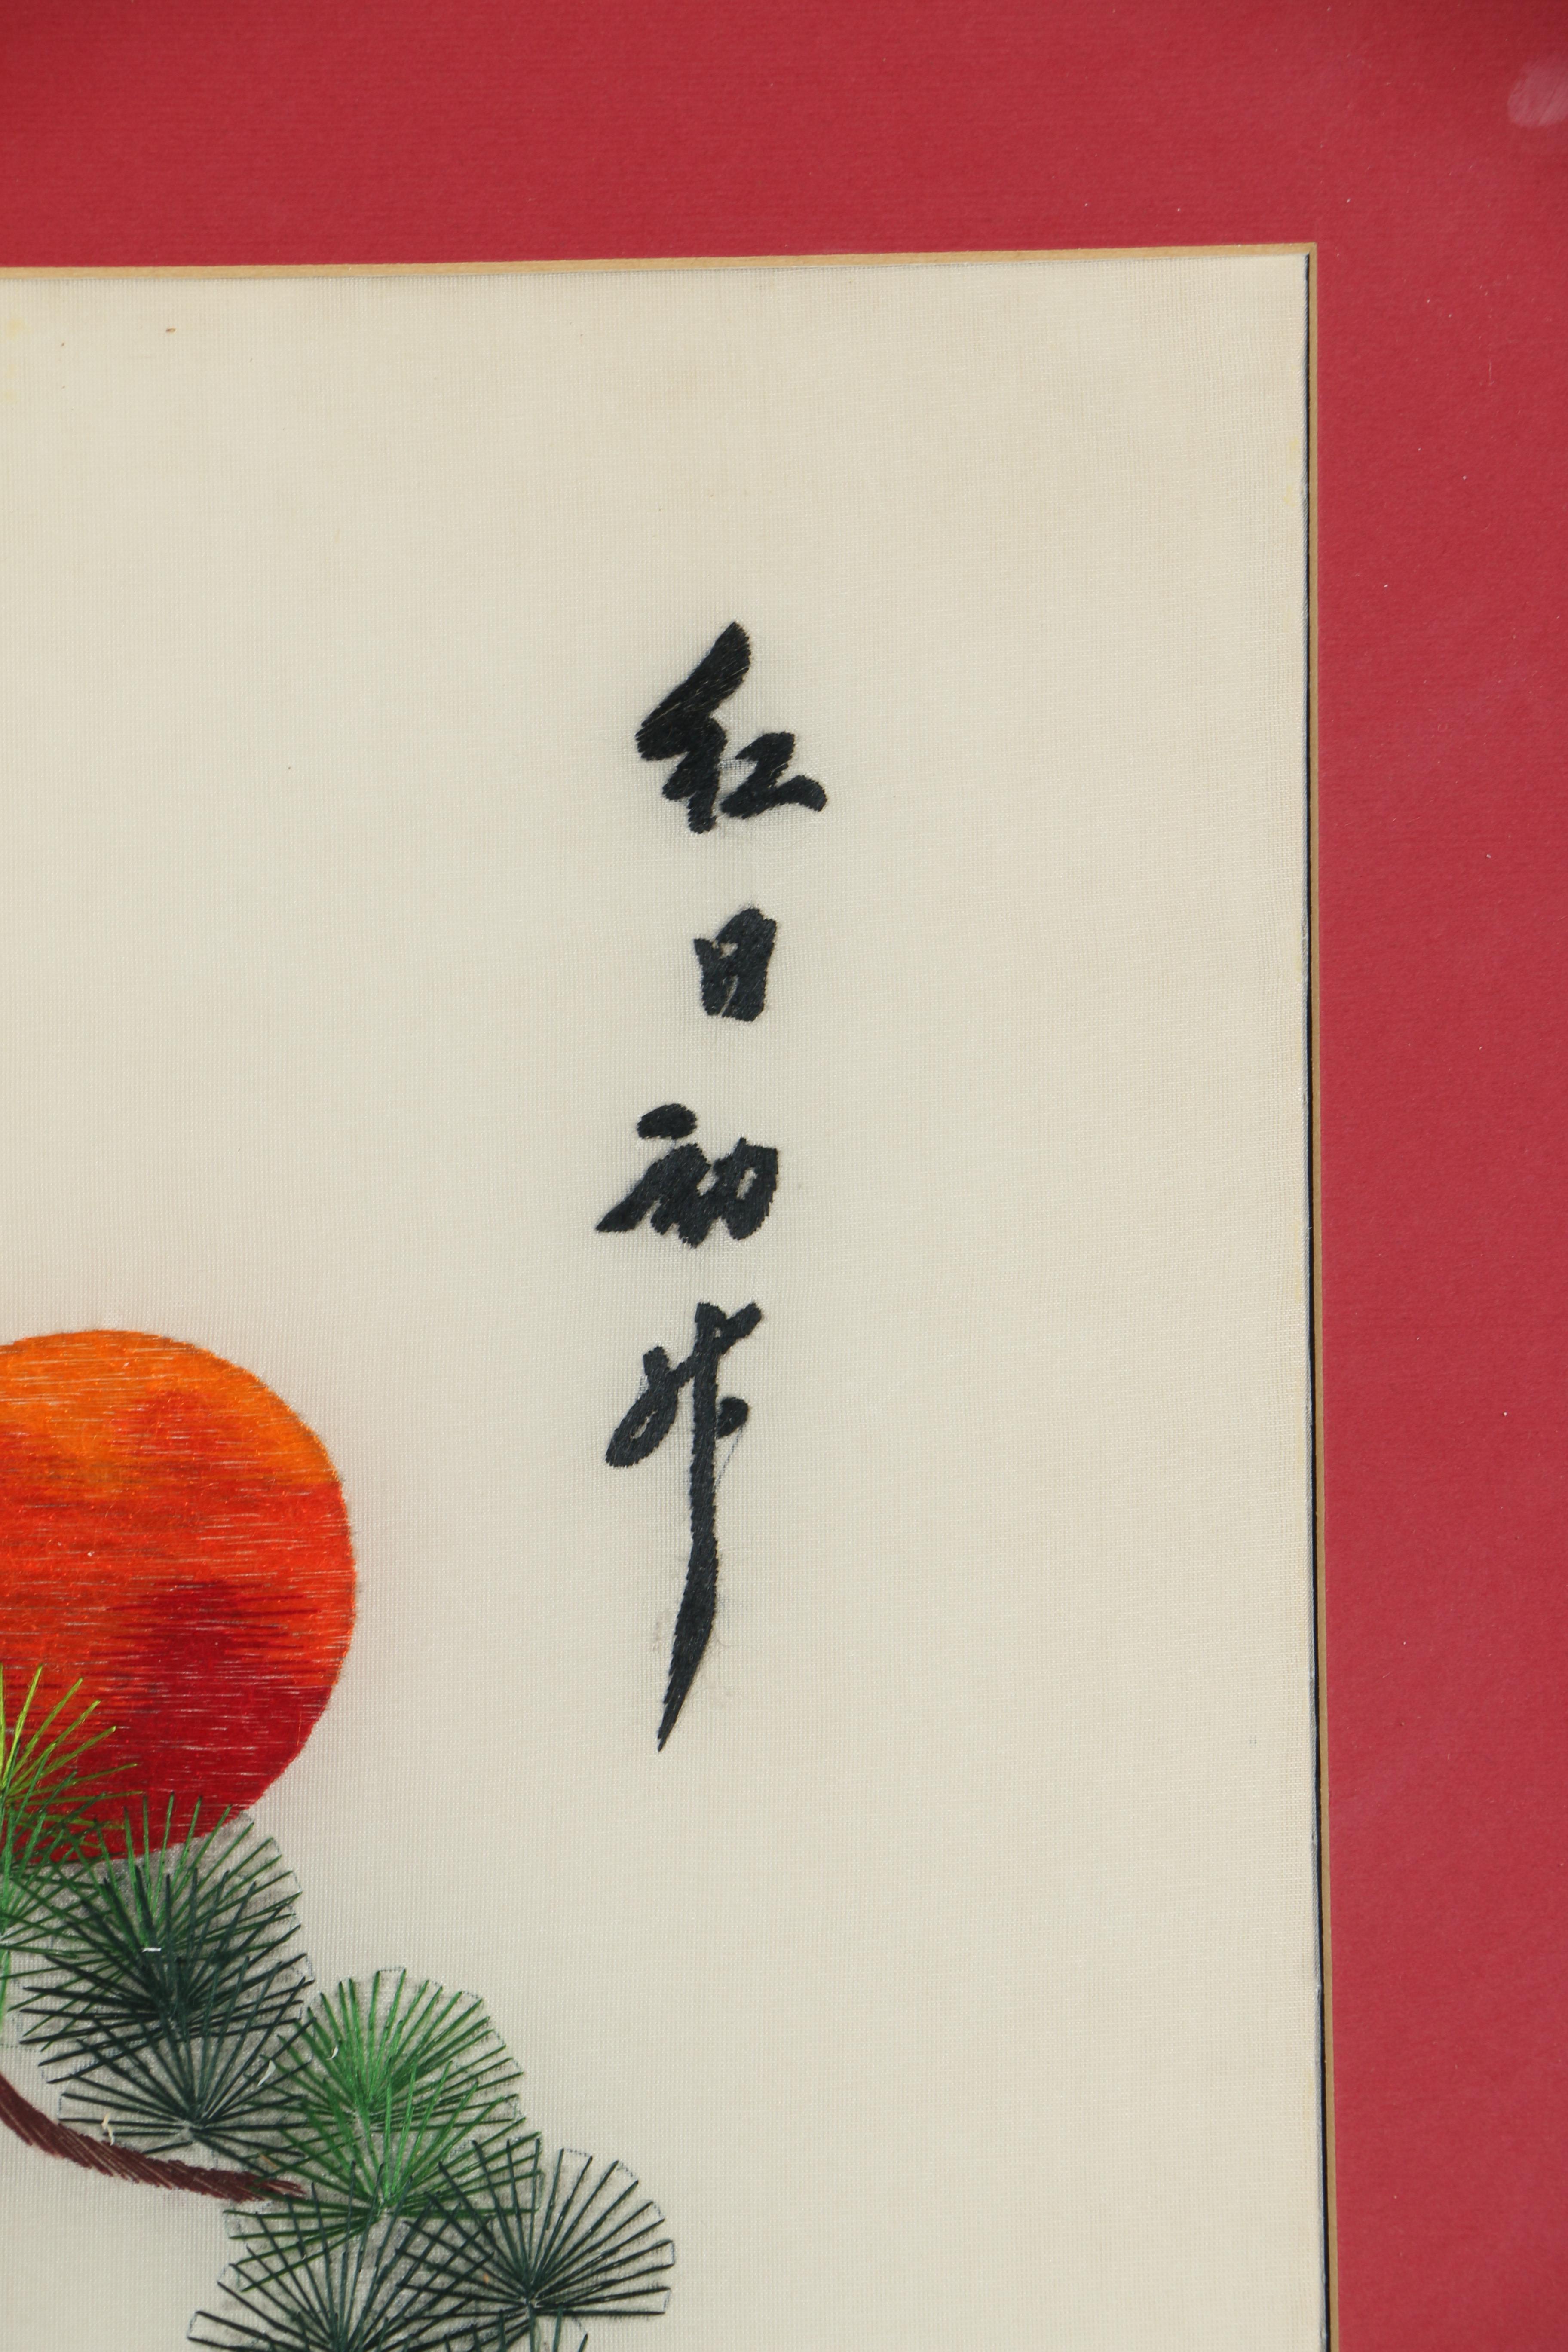 红日初升